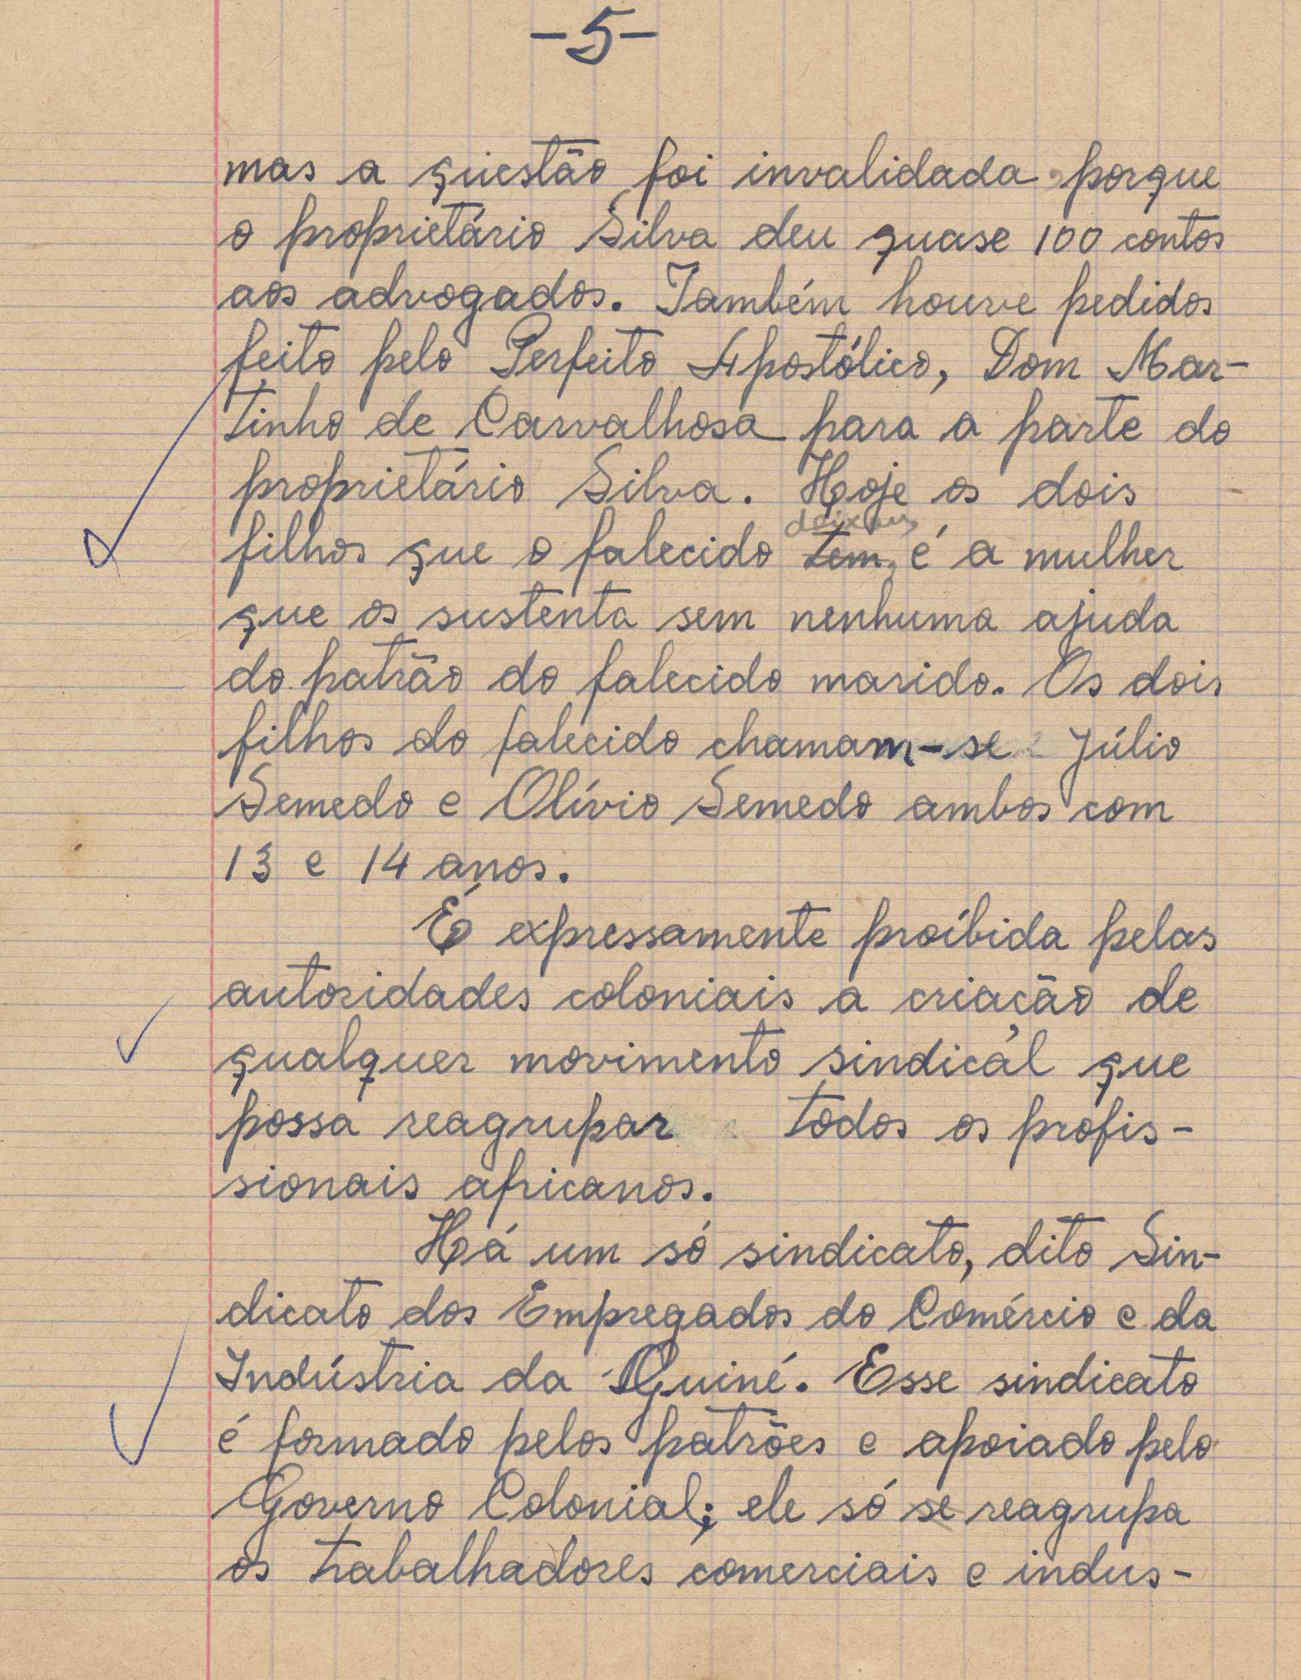 -5-
mas a qüestão foi invalidada porque
o proprietário Silva deu quase 100 contos
aos advogados. Também houve pedidos
feito pelo Perfeito Apostólico, Dom Mar-
tinho de Carvalhosa para a parte do
proprietário Silva. Hoje os dois
deixou
filhos que o falecido tem, é a mulher
que os sustenta sem nenhuma ajuda
do patrão do falecido marido. Os dois
filhos do falecido chamam-se Júlio
Semedo e Olívio Semedo ambos com
13 e 14 anos.
É expressamente proíbida pelas
autoridades coloniais a criação de
qualquer movimento sindicál que
possa reagrupar todos os profis-
sionais africanos.
Há um só sindicato, dito Sin-
dicato dos Empregados do Comércio e da
Indústria da Guiné. Esse sindicato
é formado pelos patrões e apoiado pelo
Governo Colonial; ele só se reagrupa
os trabalhadores comerciais e indus-